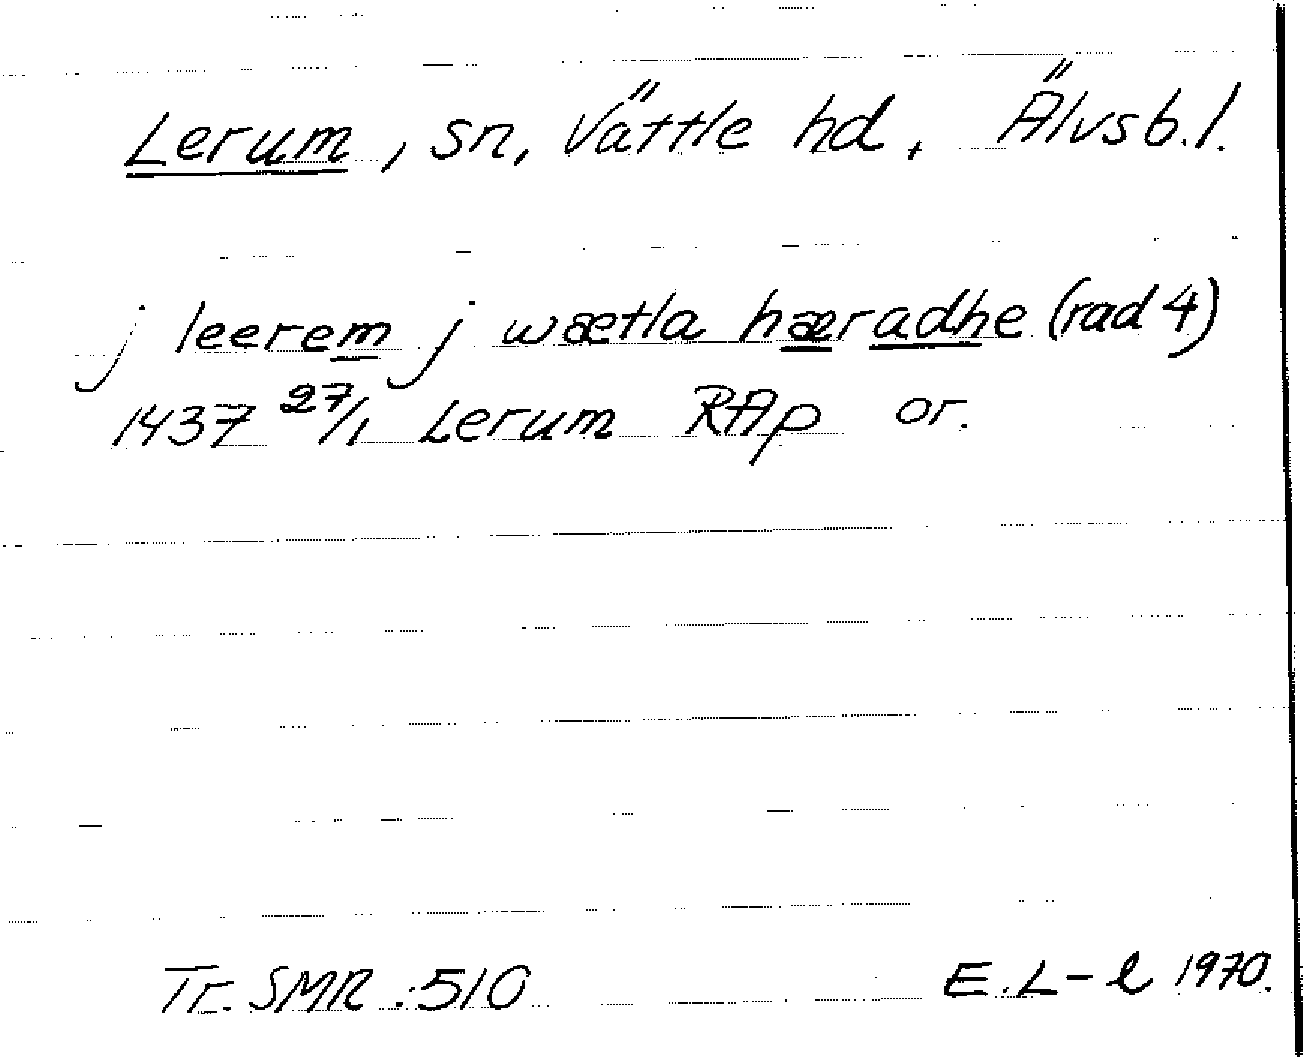 Lerum, sn, Vättle hd, Älvsb.l.
j leerem j wætla hæradhe (rad 4)
1437 27/1 Lerum RAp or.
Tr. SMR :510 E.L-l 1970.